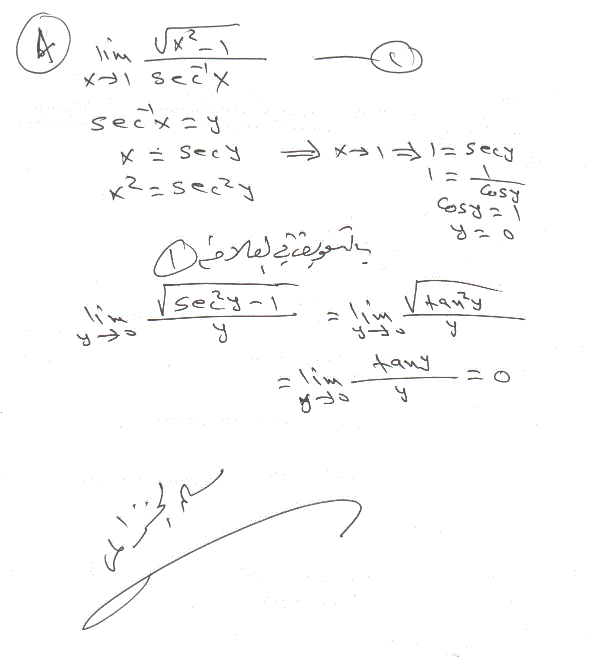 A lim x→1 √(x²-1) / sec⁻¹x — (1)
sec⁻¹x = y
x = sec y ⇒ x→1 ⇒ 1 = sec y
x² = sec²y 1 = 1/cos y
cos y = 1
y = 0
بالتعويض في العلاقة (1)
lim y→0 √(sec²y - 1) / y = lim y→0 √(tan²y) / y
= lim y→0 tan y / y = 0